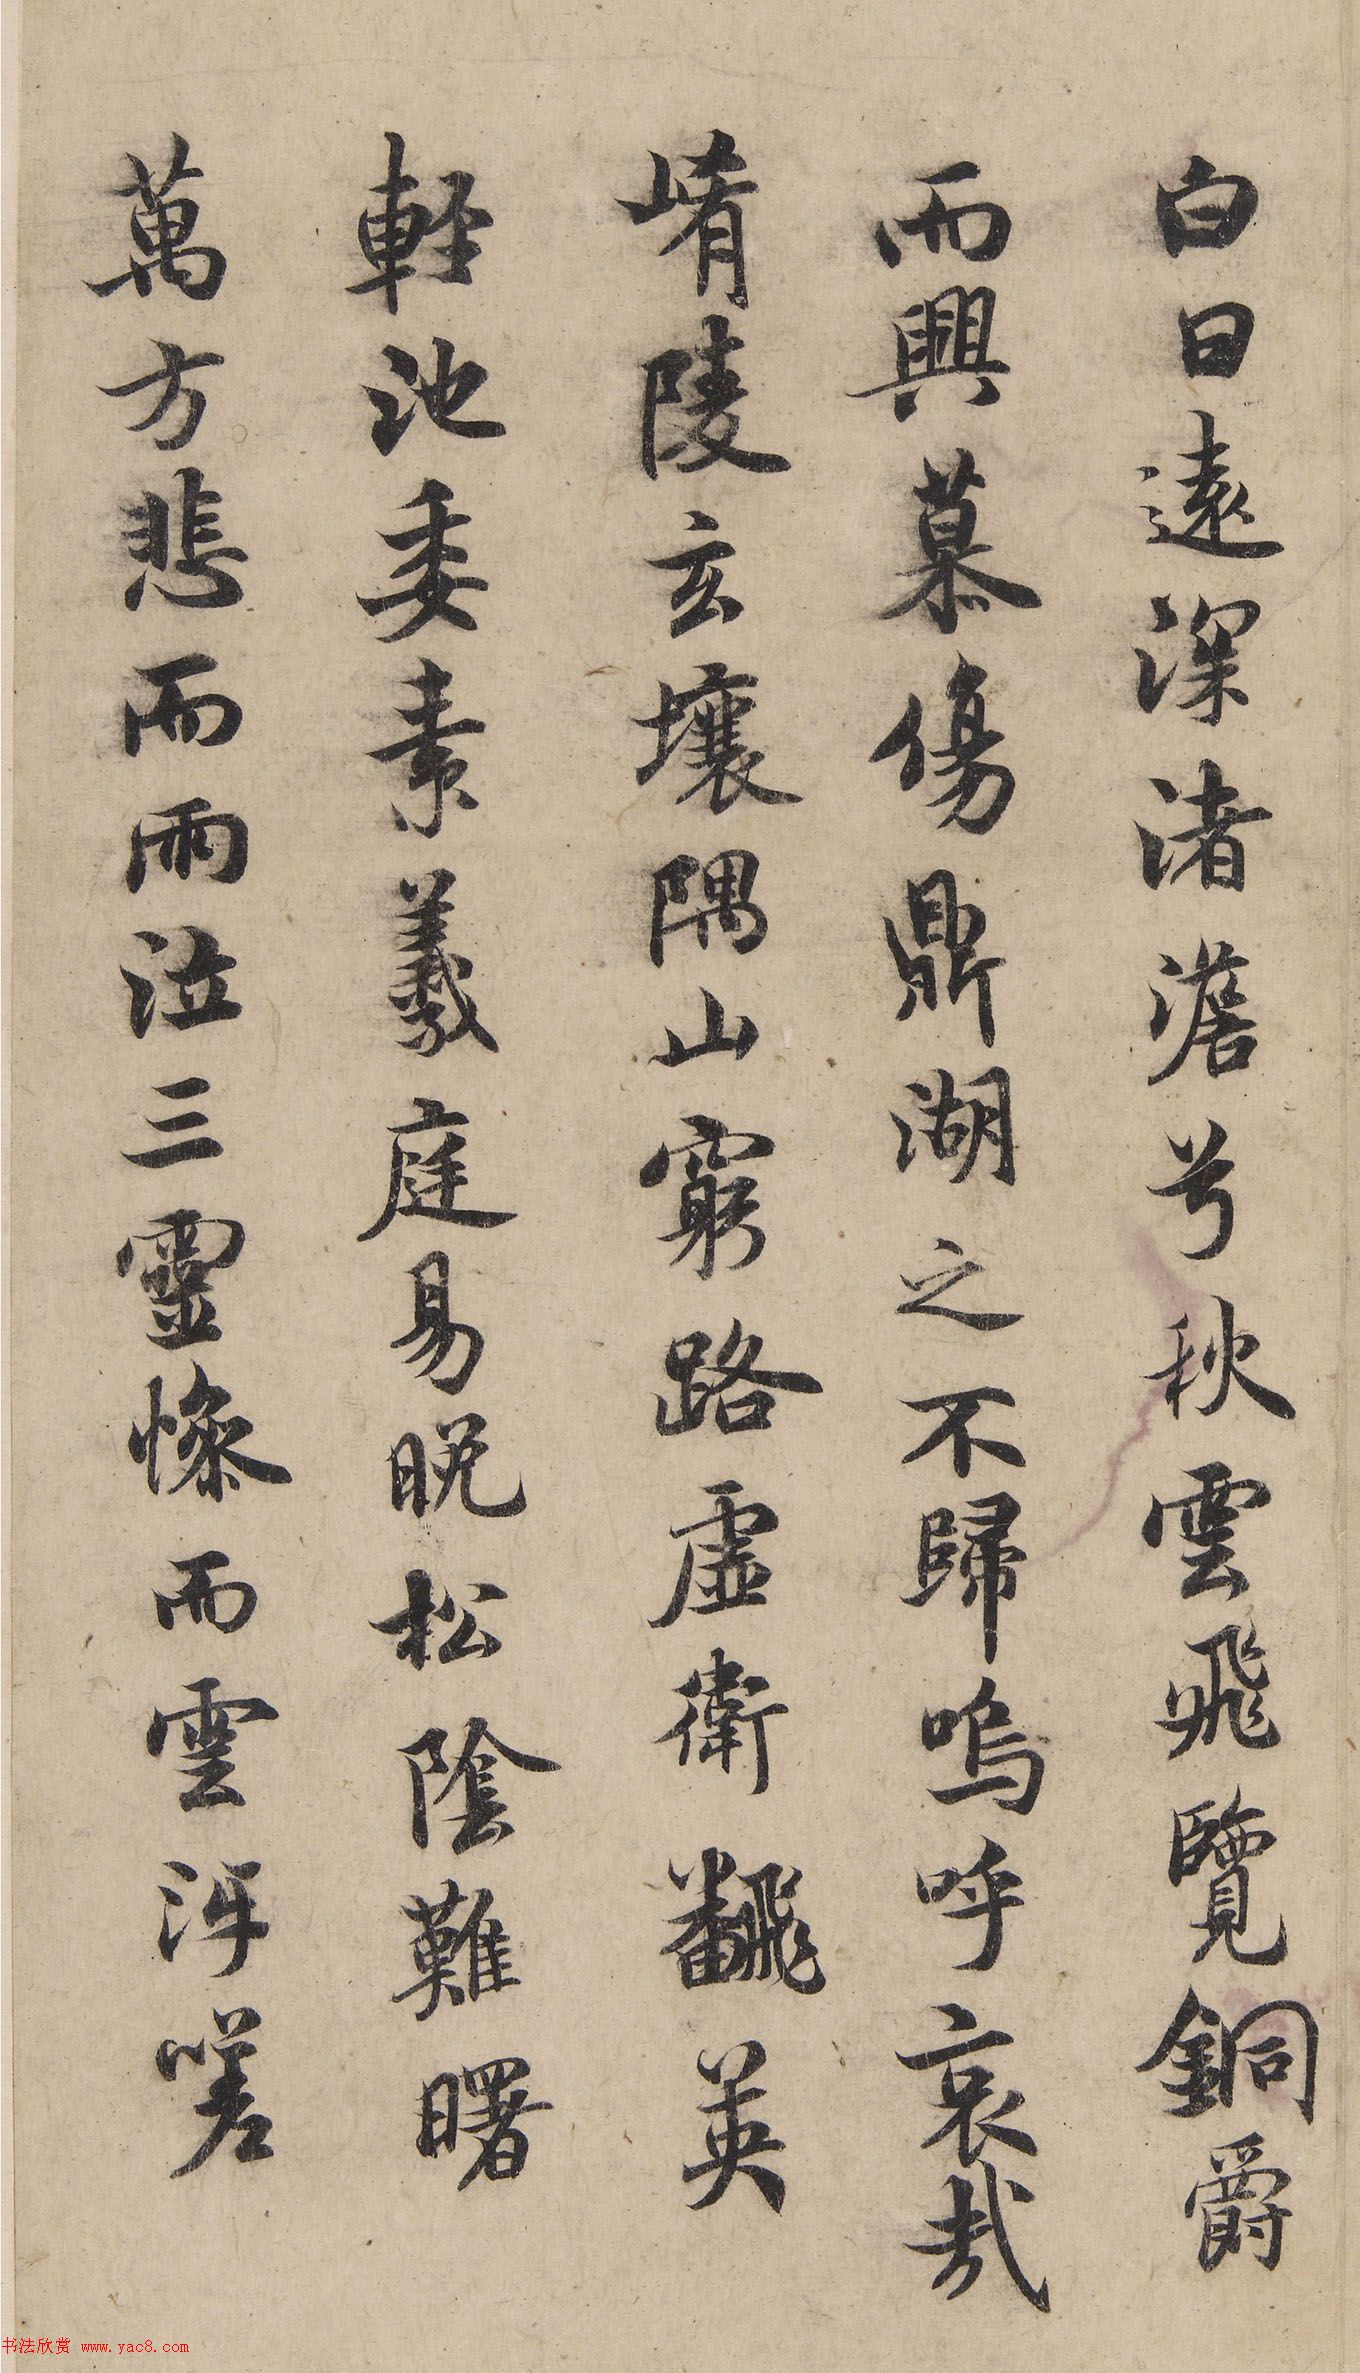 白日遠深渚澹兮秋雲飛覽銅爵
而興慕傷鼎湖之不歸嗚呼哀哉
崤陵玄壤隅山窮路虛衛飜英
輕池委素羲庭易晚松陰難曙
萬方悲而雨泣三靈慘而雲沍嗟
书法欣赏 www.yac8.com